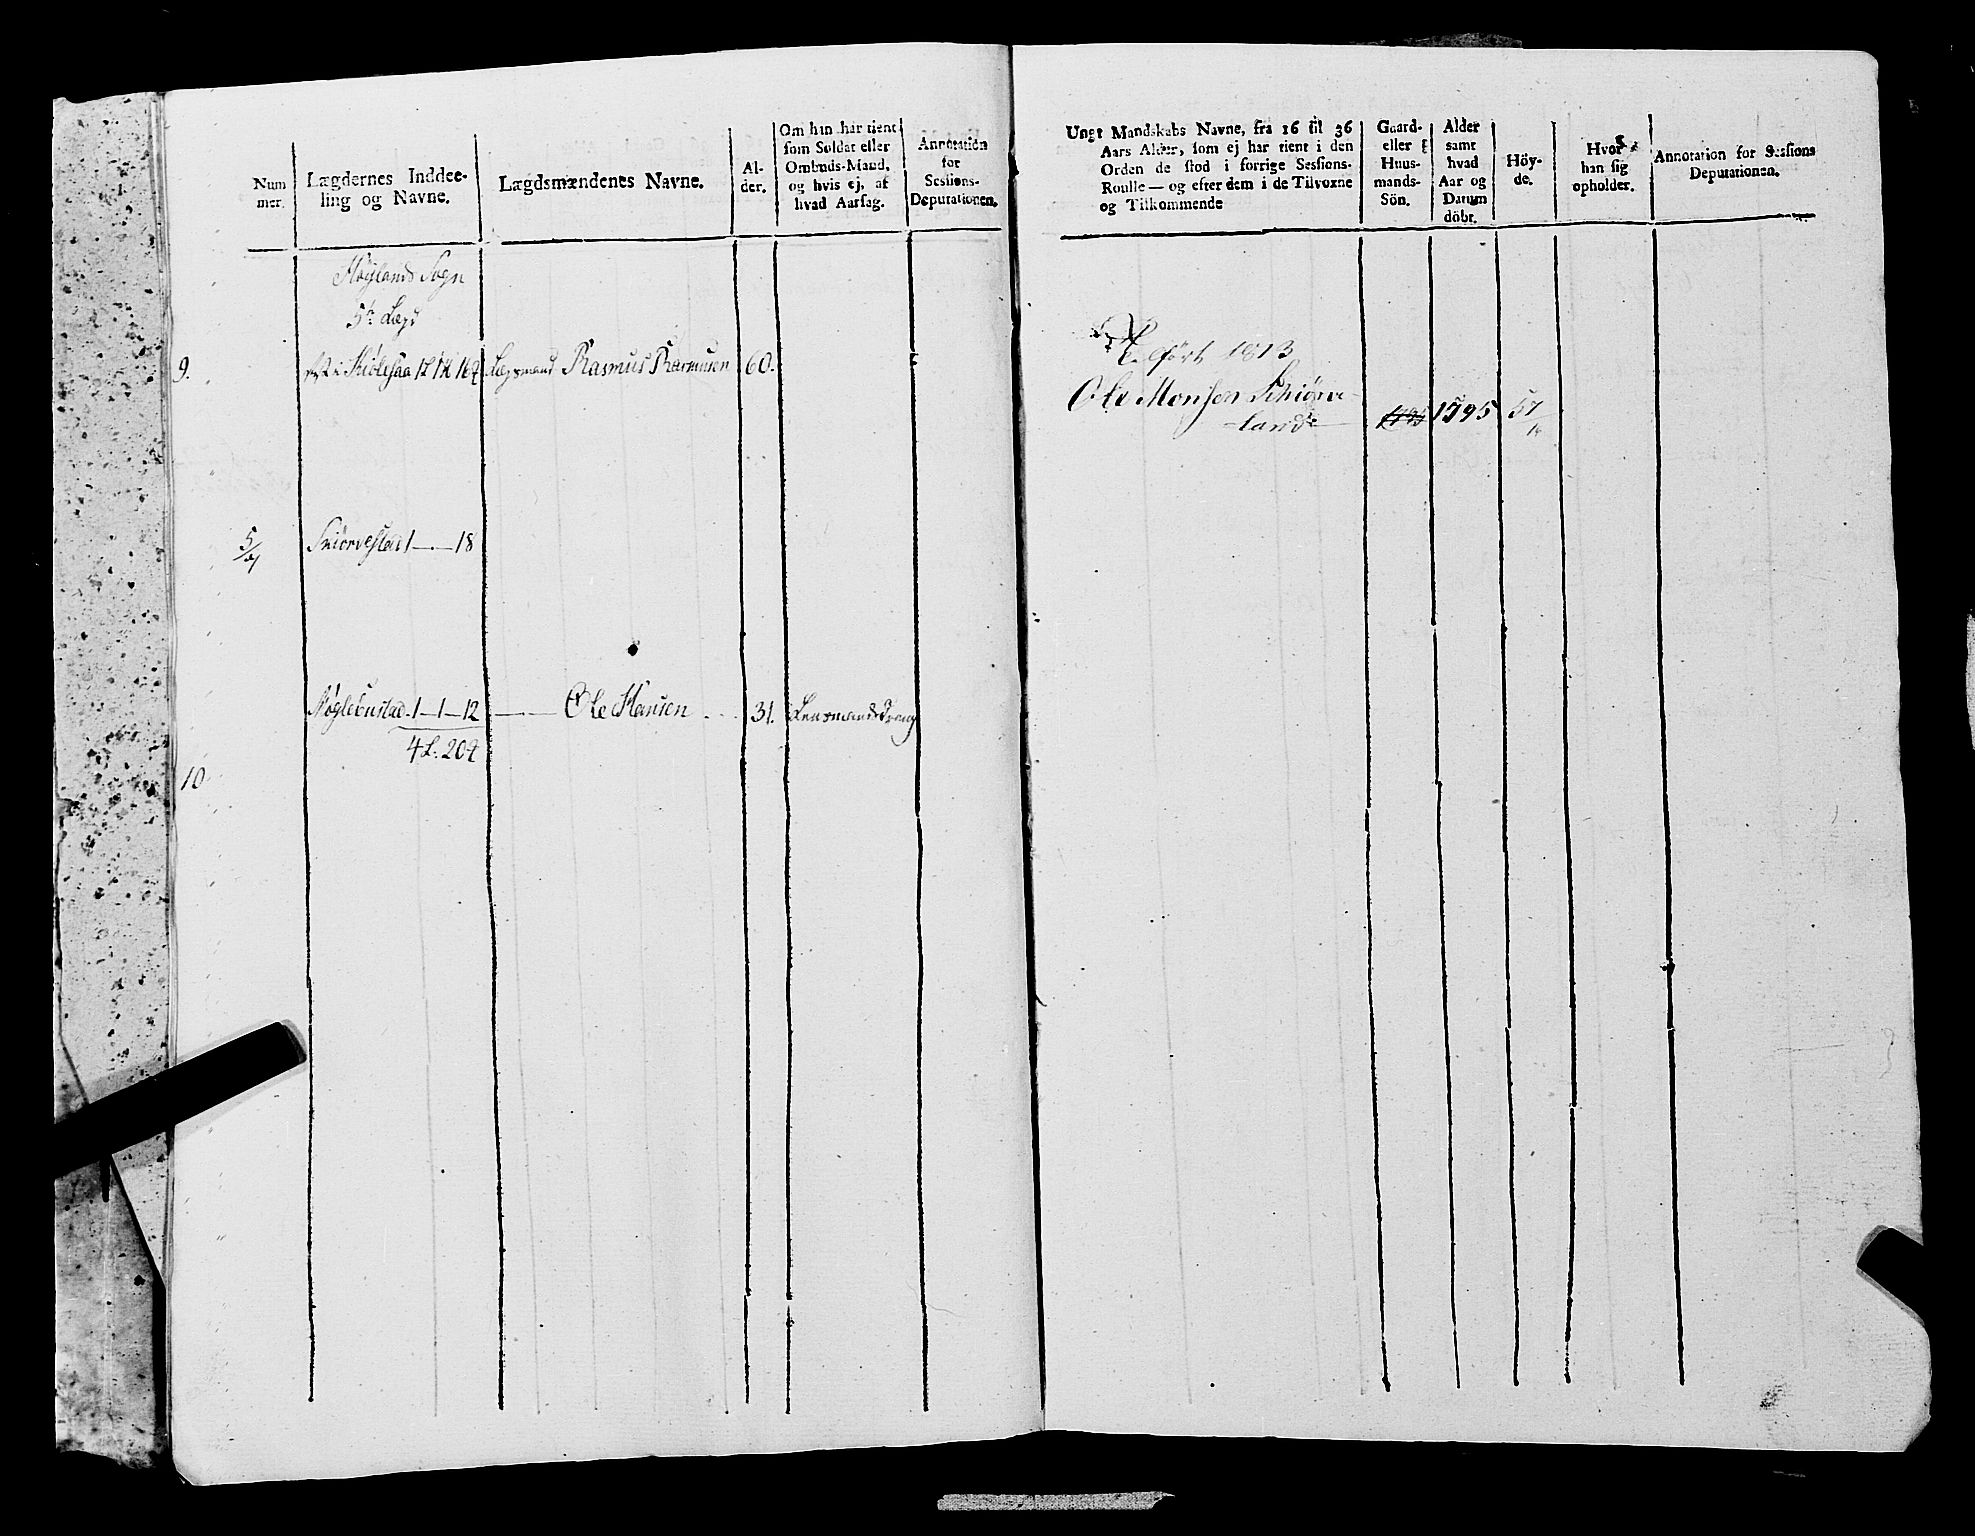 Num
mer.
Lægdernes Inddee-
ling og Navne.
Lægdsmændenes Navne.
Al-
der.
Om han har tient
som Soldat eller
Ombuds-Mand,
og hvis ej, af
hvad Aarsag.
Annotation
for
Sessions-
Deputationen.
Høylands Sogn
5te Lægd
9.
Lægsmand Rasmus Rasmusen 60.
5
1 — — 18
1 — 1 — 12 Ole Hansen 31. Lensmands Dreng
4 L. 204
10
Ungt Mandskabs Navne, fra 16 til 36
Aars Alder, som ej har tient i den
Orden de stod i forrige Sessions-
Roulle — og efter dem i de Tilvoxne
og Tilkommende
Gaard-
eller
Huus-
mands-
Sön.
Alder
samt
hvad
Aar og
Datum
döbt.
Höy-
de.
Hvor
han sig
opholder.
Annotation for Sessions
Deputationen.
Tilført 1813
Ole Monsen Schiørve-
land 1795 57